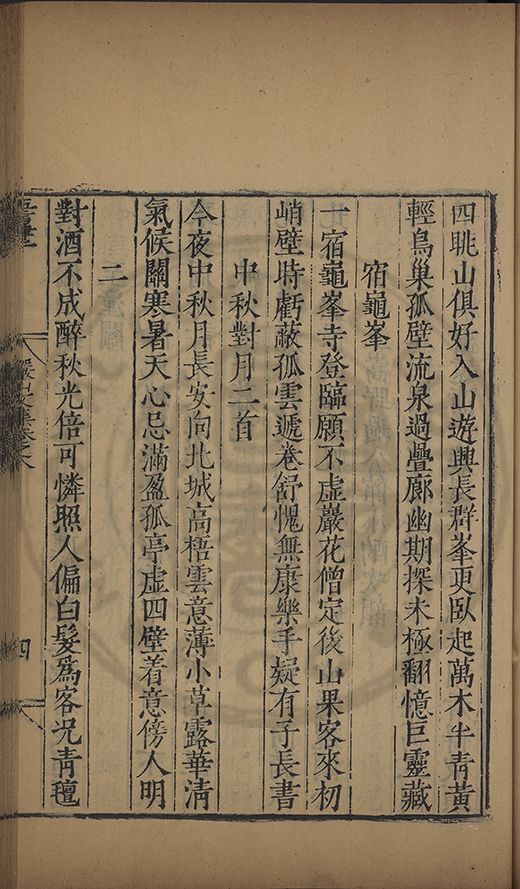 四眺山俱好入山遊興長群峯更臥起萬木半青黃
輕鳥巢孤壁流泉過疊廊幽期探未極翻憶巨靈藏
宿龜峯
一宿龜峯寺登臨願不虛巖花僧定後山果客來初
峭壁時虧蔽孤雲遞卷舒愧無康樂手疑有子長書
中秋對月二首
今夜中秋月長安向北城高梧雲意薄小草露華清
氣候關寒暑天心忌滿盈孤亭虛四壁着意傍人明
二
對酒不成醉秋光倍可憐照人偏白髮爲客況青氊
卷之八
四